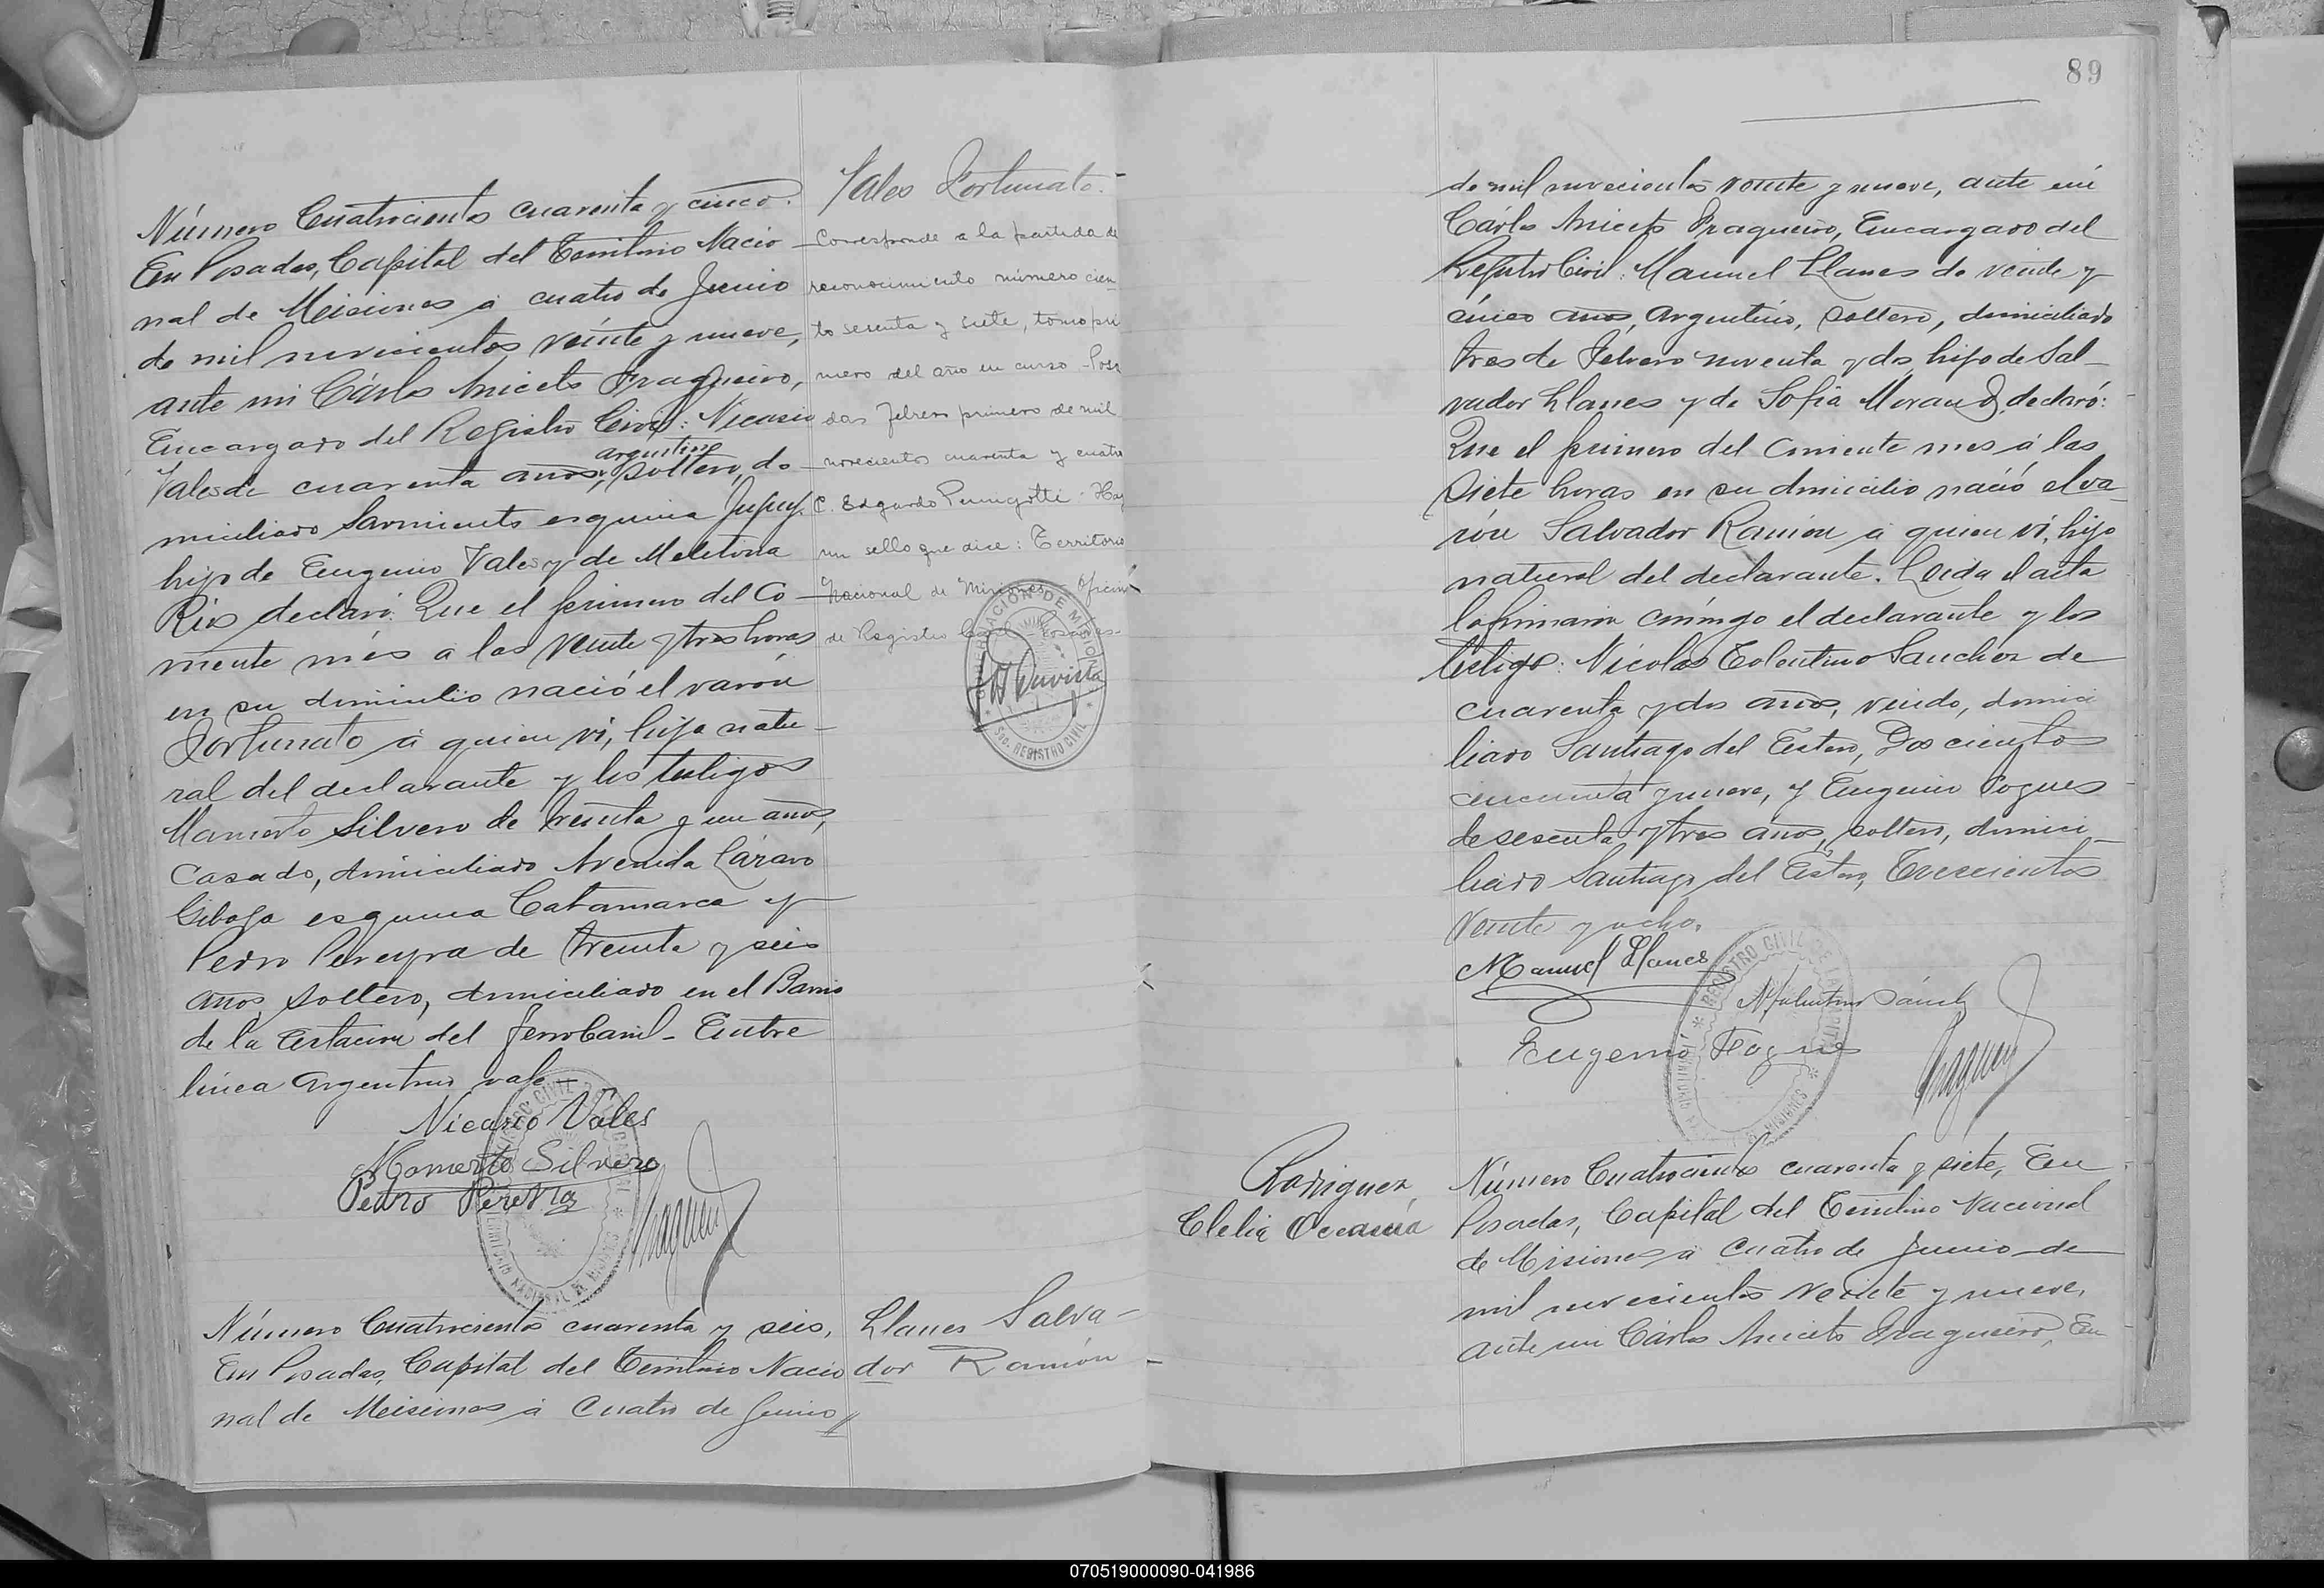 Número Cuatrocientos cuarenta y cinco.
En Posadas, Capital del Territorio Nacio
nal de Misiones á cuatro de Junio
de mil novecientos veinte y nueve,
ante mi Cárlos Aniceto Fragueiro,
Encargado del Registro Civil: Nicasio
argentino
Vales de cuarenta años, soltero, do
miciliado Sarmiento esquina Jujuy,
hijo de Eugenio Vales y de Melitona
Rios declaró: Que el primero del Co
rriente més á las veinte y tres horas
en su domicilio nació el varón
Fortunato á quien vi, hijo natu-
ral del declarante y los testigos
Mamerto Silvero de treinta y un años,
casado, domiciliado Avenida Lázaro
Gibaja esquina Catamarca y
Pedro Pereyra de treinta y seis
años, soltero, domiciliado en el Barrio
de la Estacion del FerroCarril - Entre
linea argentino vale -
Nicasio Váles
Mamerto Silvero
Pedro Pereyra
Fragueiro
REGISTRO CIVIL DE LA CAPITAL
TERRITORIO NACIONAL DE MISIONES
Vales Fortunato.-
Corresponde a la partida de
reconocimiento número cien
to sesenta y siete, tomo pri
mero del año en curso - Posa
das Febrero primero de mil
novecientos cuarenta y cuatro
C. Edgardo Hay
un sello que dice: Territorio
Nacional de Misiones Oficina
de Registro Civil - Posadas-
GOBERNACION DE MISIONES
Sec. REGISTRO CIVIL
Número Cuatrocientos cuarenta y seis,
En Posadas, Capital del Territorio Nacio
nal de Misiones á Cuatro de Junio //
Llanes Salva-
dor Ramón
89
de mil novecientos veinte y nueve, ante mi
Cárlos Aniceto Fragueiro, Encargado del
Registro Civil: Manuel Llanes de veinte y
cinco años, Argentino, soltero, domiciliado
tres de Febrero noventa y dos, hijo de Sal-
vador Llanes y de Sofia declaró:
Que el primero del Corriente mes á las
Siete horas en su domicilio nació el va-
rón Salvador Ramón á quien vi, hijo
natural del declarante. Leida el acta
la firmaron conmigo el declarante y los
testigos: Nicolás Tolentino Sanchez de
cuarenta y dos años, viudo, domici
liado Santiago del Estero, Doscientos
cincuenta y nueve, y Eugenio Pogues
de sesenta y tres años, soltero, domici-
liado Santiago del Estero, Trescientos
Veinte y ocho.
Manuel Llanes
N Tolentino Sánchez
Eugenio
Fragueiro
REGISTRO CIVIL DE LA CAPITAL
TERRITORIO DE MISIONES
Rodriguez
Clelia
Número Cuatrocientos cuarenta y siete, En
Posadas, Capital del Territorio Nacional
de Misiones á Cuatro de Junio de
mil novecientos veinte y nueve,
ante mi Cárlos Aniceto Fragueiro, En
070519000090-041986